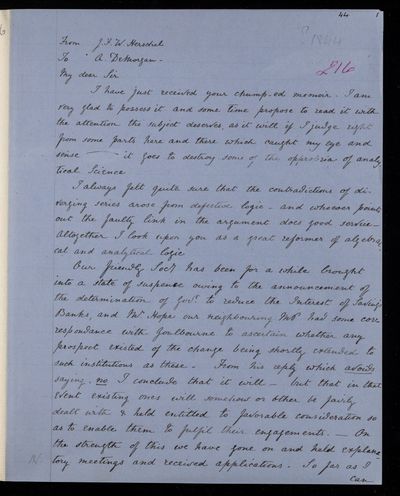 44 1
? 1844
216
From J.F.W. Herschel
To A. DeMorgan -
My dear Sir
I have just received your thump-ed memoir. I am
very glad to possess it and some time propose to read it with
the attention the subject deserves, as it will if I judge right
from some parts here and there which caught my eye and
sense — it goes to destroy some of the opprobria of analy
tical Science
I always felt quite sure that the contradictions of di-
verging series arose from defective logic - and whoever points
out the faulty link in the argument does good service -
Altogether I look upon you as a great reformer of algebrai
cal and analytical logic
Our friendly Socy has been for a while brought
into a state of suspense owing to the announcement of
the determination of Govt. to reduce the Interest of Savings
Banks, and Mr Hope our neighbouring M.P. had some corr
respondance with Goulbourne to ascertain whether any
prospect existed of the change being shortly extended to
such institutions as these - From his reply which avoids
saying no I conclude that it will - but that in that
event existing ones will somehow or other be fairly
dealt with & held entitled to favorable consideration so
as to enable them to fulfil their engagements. - On
the strength of this we have gone on and held explana
tory meetings and received applications. So far as I
can